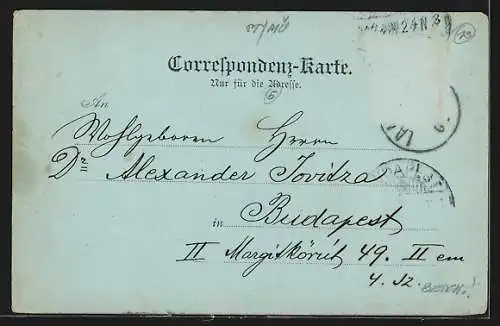 Correspondenz-Karte.
Nur für die Adresse.
An
Wohlgeboren Herrn
Dr Alexander Jovitza
in Budapest
II Margitkörút 49. II em
4. Sz.